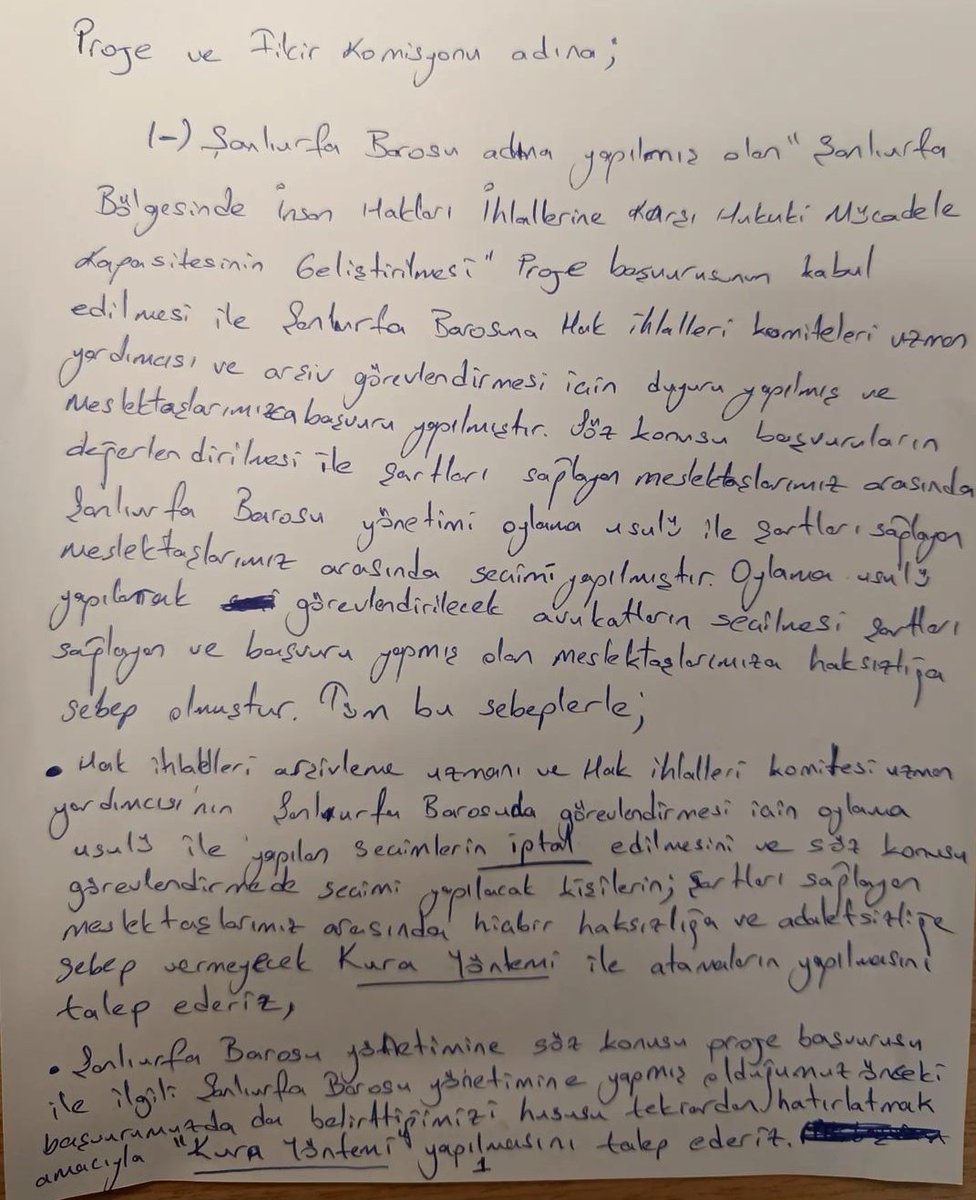 Proje ve Fikir Komisyonu adına;
1-) Şanlıurfa Barosu adına yapılmış olan "Şanlıurfa
Bölgesinde İnsan Hakları İhlallerine Karşı Hukuki Mücadele
Kapasitesinin Geliştirilmesi" Proje başvurusunun kabul
edilmesi ile Şanlıurfa Barosuna Hak ihlalleri komiteleri uzman
yardımcısı ve arşiv görevlendirmesi için duyuru yapılmış ve
Meslektaşlarımızca başvuru yapılmıştır. Söz konusu başvuruların
değerlendirilmesi ile şartları sağlayan meslektaşlarımız arasında
Şanlıurfa Barosu yönetimi oylama usulü ile şartları sağlayan
meslektaşlarımız arasında seçimi yapılmıştır. Oylama usulü
yapılarak görevlendirilecek avukatların seçilmesi şartları
sağlayan ve başvuru yapmış olan meslektaşlarımıza haksızlığa
sebep olmuştur. Tüm bu sebeplerle;
• Hak ihlalleri arşivleme uzmanı ve Hak ihlalleri komitesi uzman
yardımcısı'nın Şanlıurfa Barosuda görevlendirmesi için oylama
usulü ile yapılan seçimlerin iptal edilmesini ve söz konusu
görevlendirmede seçimi yapılacak kişilerin; şartları sağlayan
meslektaşlarımız arasında hiçbir haksızlığa ve adaletsizliğe
sebep vermeyecek Kura Yöntemi ile atamaların yapılmasını
talep ederiz,
• Şanlıurfa Barosu yönetimine söz konusu proje başvurusu
ile ilgili Şanlıurfa Barosu yönetimine yapmış olduğumuz önceki
başvurumuzda da belirttiğimizi hususu tekrardan hatırlatmak
amacıyla "Kura Yöntemi" yapılmasını talep ederiz.
1